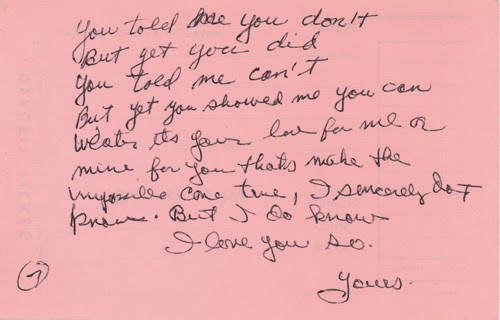 You told me you don't
But yet you did
You told me can't
But yet you showed me you can
its your love for me or
mine for you thats make the
impossible come true, I sincerely don't
know. But I do know
I love you so.
Yours.
7